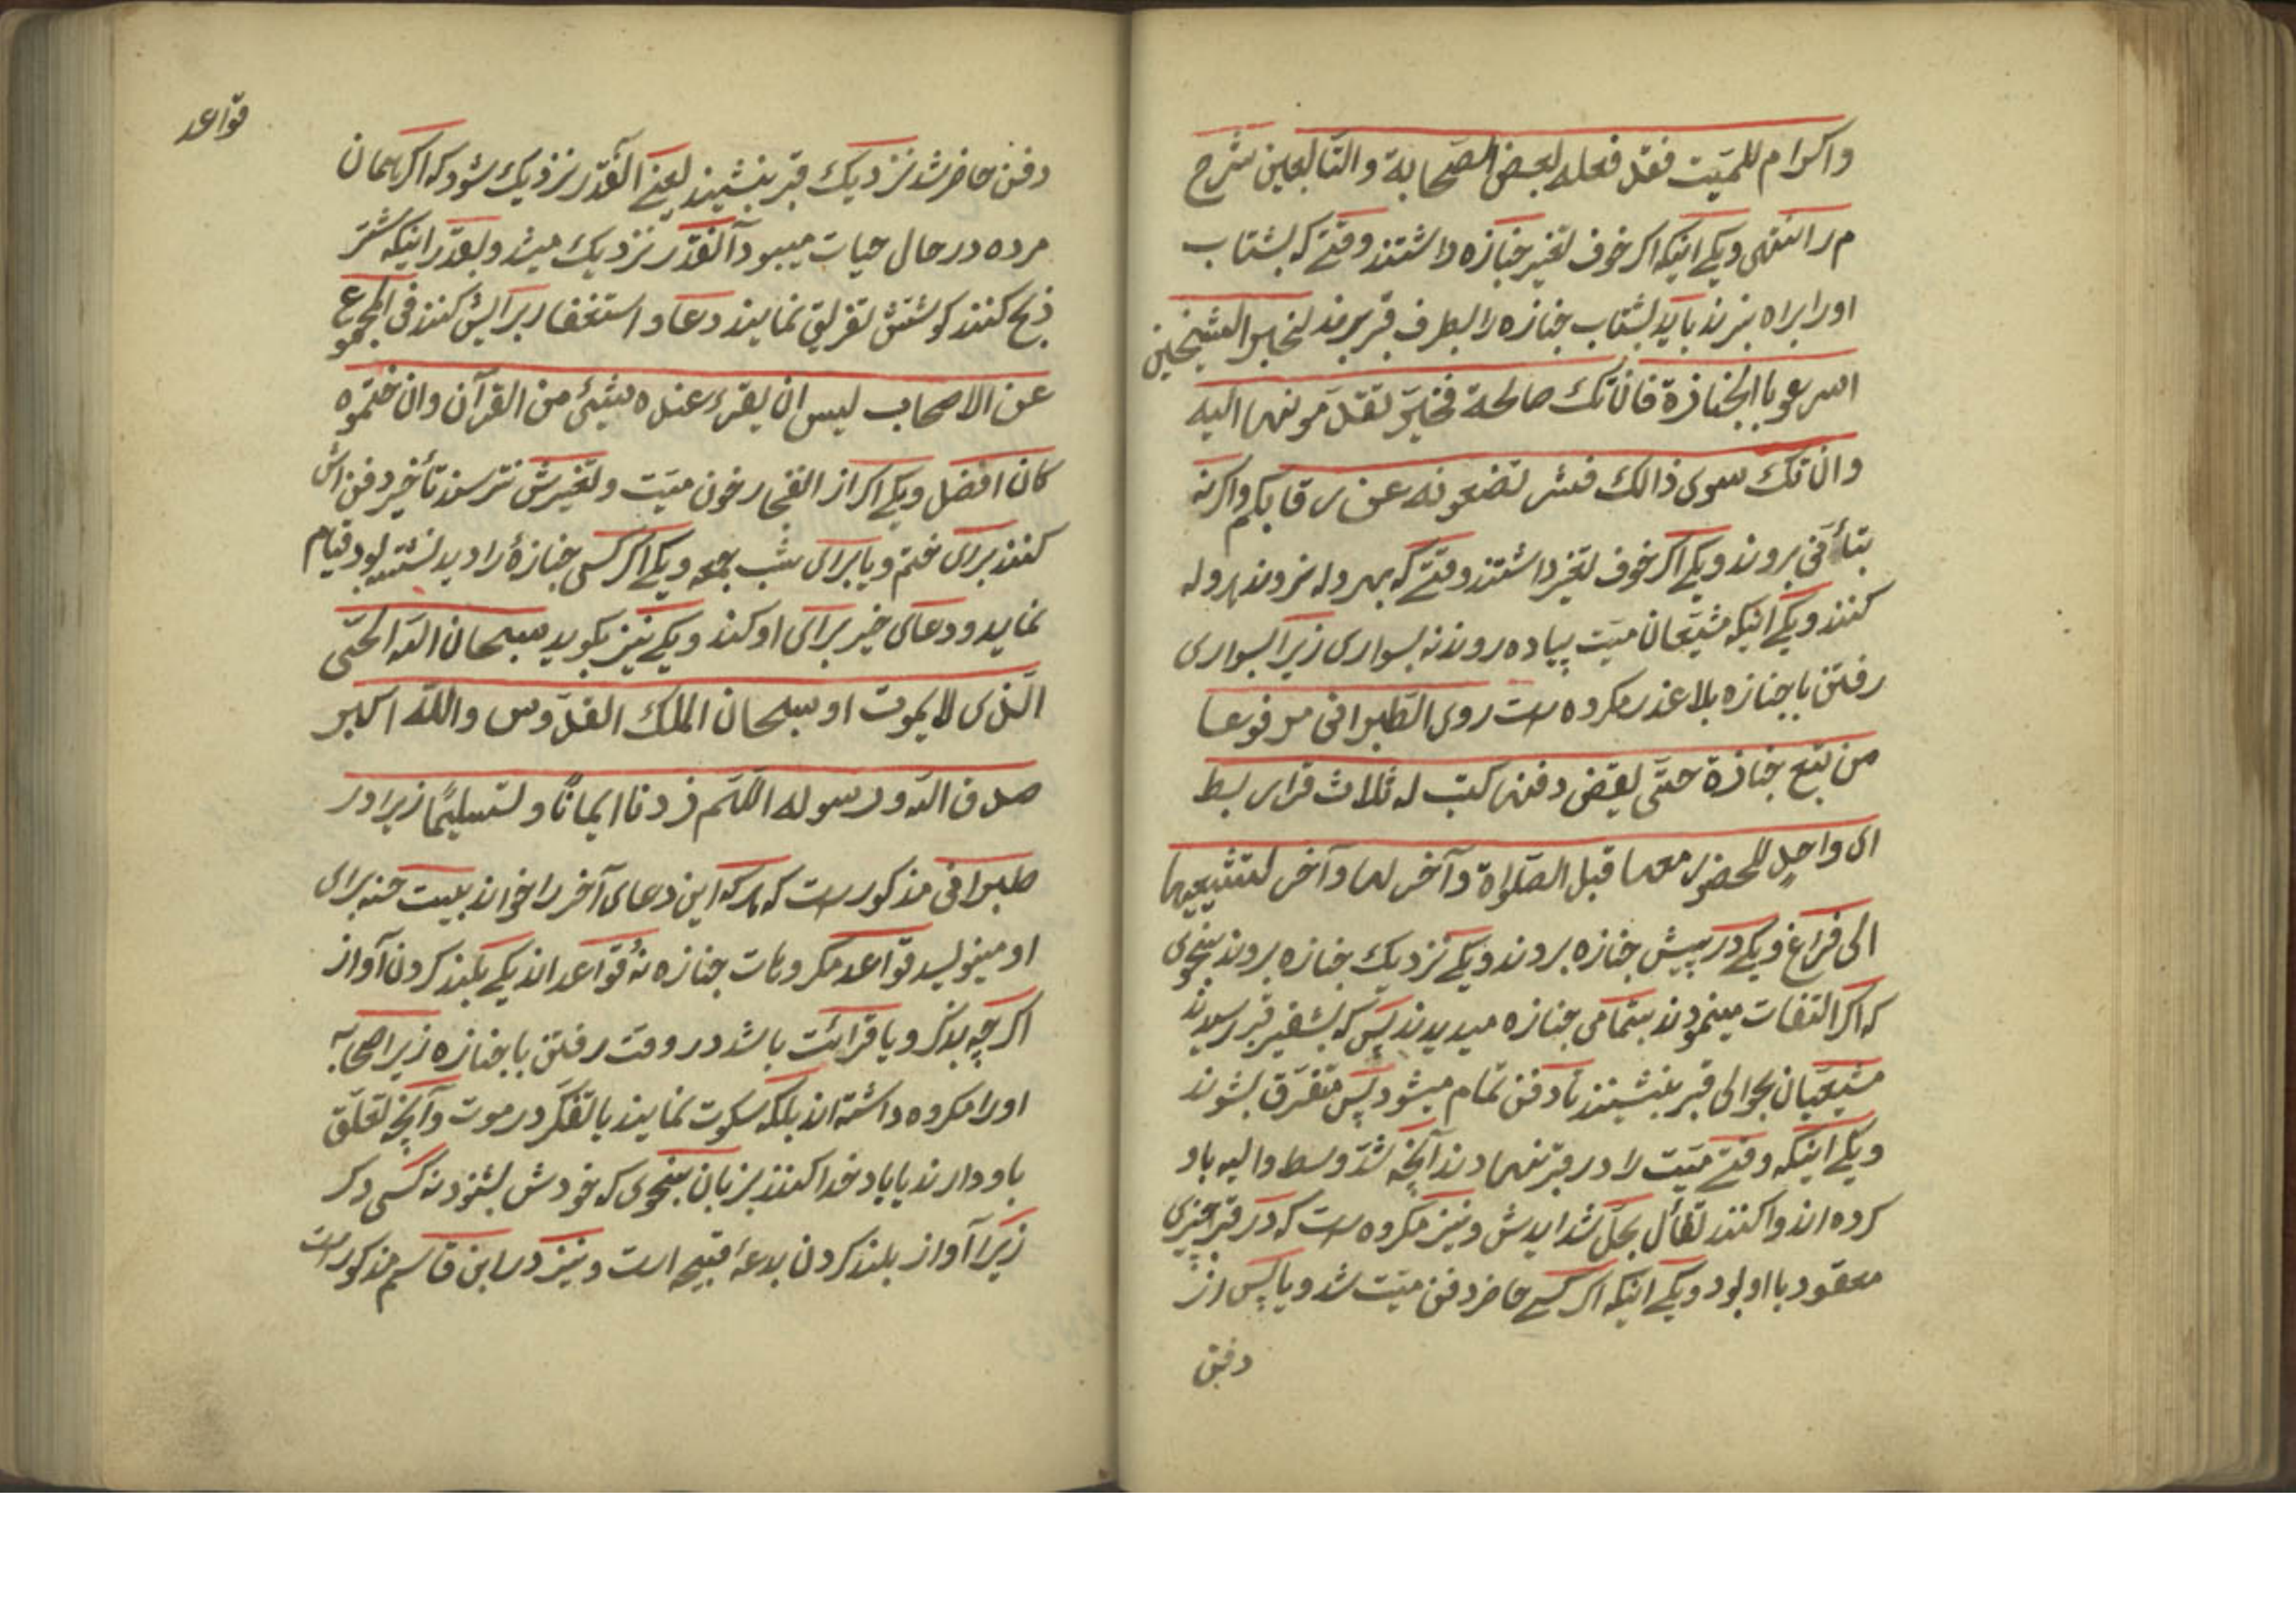 واکرام للمیّت فقد فعله بعض الصّحابة والتّابعین شرح
م ر انتهی ویکے اینکه اکر خوف تغیر جنازه داشتند وقتے که بشتاب
اورا براه نبرند باید بشتاب جنازه را بطرف قبر برند لخبر الشیخین
اسرعو با الجنازة فان تک صالحة فخیر تقدّمونها الیه
وان تک سوی ذالک فشر تضعونه عن رقابکم واکر نه
بتأنّی بروند ویکے اکر خوف تغیر داشتند وقتے که بهروله نروند هروله
کنند ویکے اینکه مشیّعان میّت پیاده روند نه بسواری زیرا بسواری
رفتن با جنازه بلا عذر مکروه ست روی الطّبرانی مرفوعا
من تبع جنازة حتّی یقضی دفنها کتب له ثلاث قراریط
ای واحدٍ للحضور معها قبل الصّلواة وآخر لها وآخر لتشییعها
الی فراغ ویکے در پیش جنازه بروند ویکے نزدیك جنازه بروند بنحوی
که اکر التفات مینمودند بتمامی جنازه میدیدند پس که بشفیر قبر رسیدند
مشیعیان بحوالی قبر بنشینند تا دفن تمام میشود پس متفرّق بشوند
ویکے اینکه وقتے میّت را در قبر نهادند آنچه شدّ وسط والیه باو
کرده اند وا کنند تفأل بحلّ شدایدش ونیز مکروه ست که در قبر چیزی
معقود با او بود ویکے اینکه اکر کسے حاضر دفن میّت شد ویا پس از
دفن
قوّاعد
دفن حاضر شد نزدیك قبر بنشیند یعنے آنقدر نزدیك شود که اکر همان
مرده در حال حیات میبود آنقدّر نزدیك میشد وبقدّر اینکه شتر
ذبح کنند کوشتش تفریق نمایند دعا واستغفار برایش کنند فی المجموع
عن الاصحاب لیس ان یقرء عنده شیئ من القرآن وان ختموه
کان افضل ویکے اکر از انفجار خون میّت وتغیرش نترسند تأخیر دفن اش
کنند برای ختم ویا برای شب جمعه ویکے اکر کسی جنازهٔ را دید نشسته بود قیام
نماید ودعای خیر برای او کند ویکے نیز بکوید سبحان الله الحیّ
الّذی لا یموت او سبحان الملك القدّوس والله اکبر
صدق الله ورسوله اللّهم زدنا ایمانًا وتسلیمًا زیرا در
طبرانی مذکور ست که هر که این دعای آخر را خواند بیست حسنه برای
او مینولیسد قوّاعد مکروهات جنازه نهٔ قوّاعد اند یکے بلند کردن آواز
اکر چه بذکر ویا قرائت باشد در وقت رفتن با جنازه زیرا صحابه
اورا مکروه داشته اند بلکه سکوت نمایند با تفکّر در موت وآنچه تعلّق
باو دارند یا یاد خدا کنند بزبان بنحوی که خودش بشنود نه کسی دکر
زیرا آواز بلند کردن بدعهٔ قبیحه است ونیز در ابن قاسم مذکور است